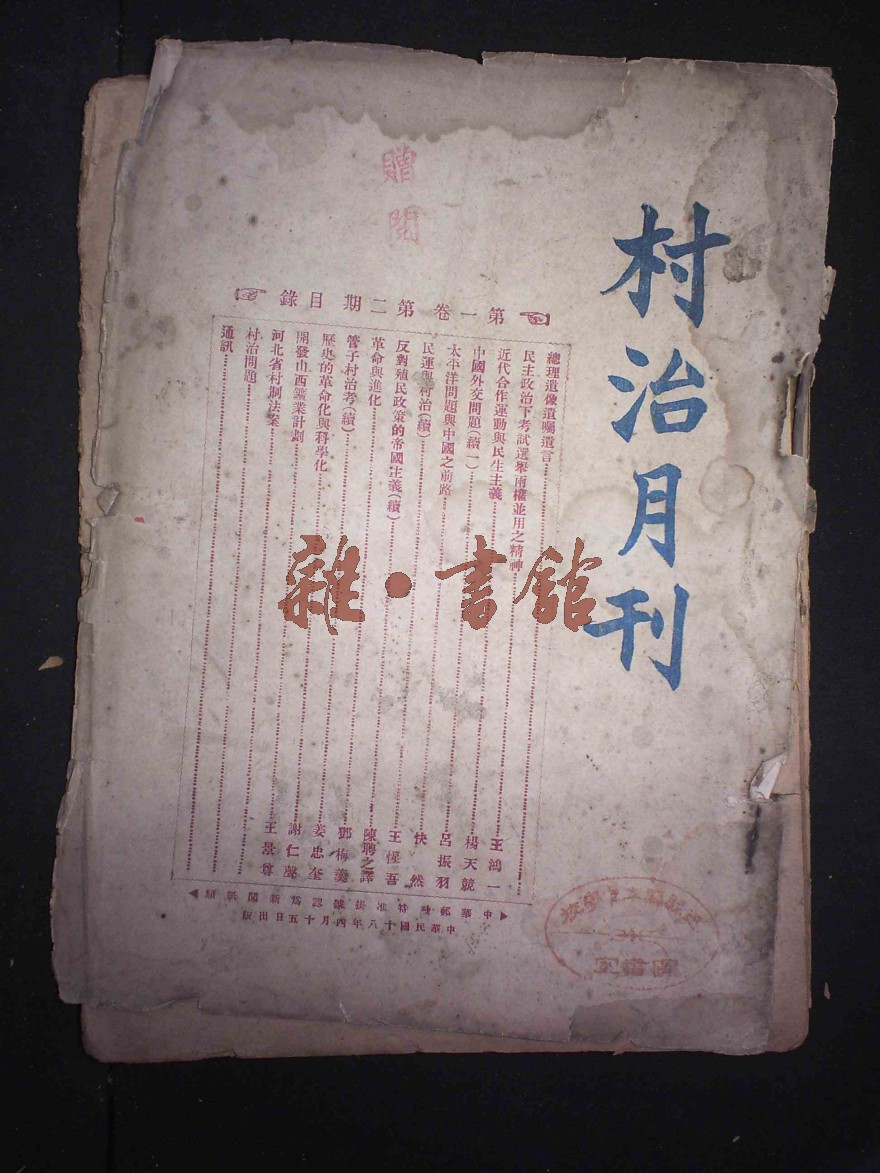 村治月刊
贈閱
第一卷第二期目錄
總理遺像遺囑遺言
民主政治下考試選舉兩權並用之精神……王鴻一
近代合作運動與民生主義……楊天競
中國外交問題(續一)……呂振羽
太平洋問題與中國之前路……快然
民運與村治(續)……王惺吾
反對殖民政策的帝國主義(續)……陳聘之譯
革命與進化……鄧梅羹
管子村治考(續)……姜忠奎
歷史的革命化與科學化……謝仁聲
開發山西礦業計劃……王景尊
河北省村制法案……
村治問題……
通訊……
中華郵政特准掛號認爲新聞紙類
中華民國十八年四月十五日出版
圖書室
雜·書館